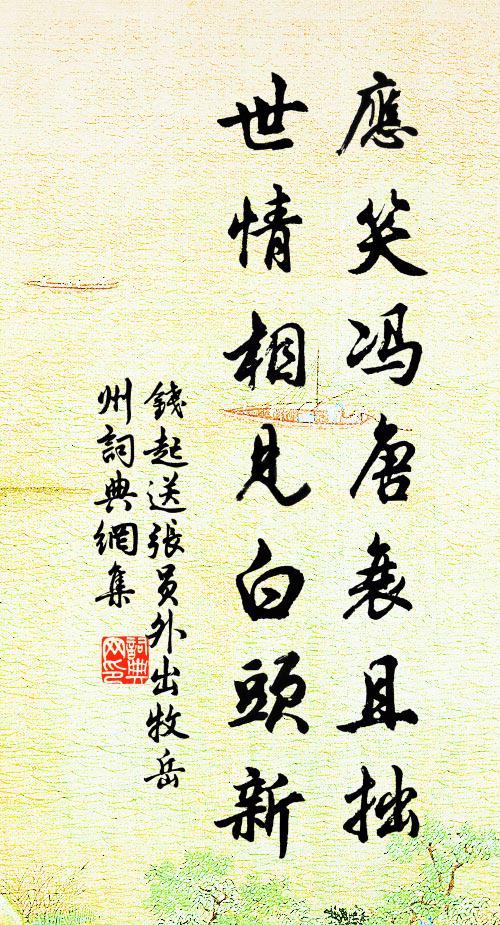 應笑冯唐衰且拙
世情相見白頭新
錢起送張員外出牧岳
州詞典網集
詞典
网印